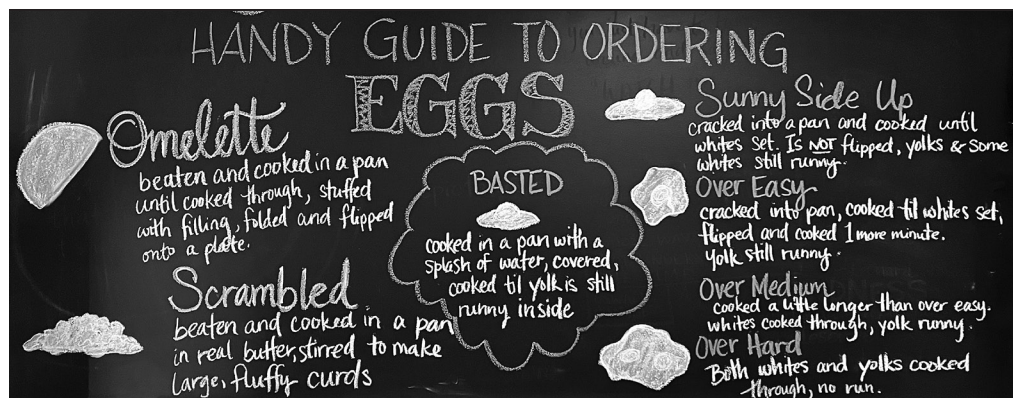 HANDY GUIDE TO ORDERING
EGGS
Omelette
beaten and cooked in a pan
until cooked through, stuffed
with filling, folded and flipped
onto a plate.
Scrambled
beaten and cooked in a pan
in real butter, stirred to make
large, fluffy curds
BASTED
cooked in a pan with a
splash of water, covered,
cooked til yolk is still
runny inside
Sunny Side Up
cracked into a pan and cooked until
whites set. Is NOT flipped, yolks & some
whites still runny.
Over Easy
cracked into pan, cooked til whites set,
flipped and cooked 1 more minute.
yolk still runny.
Over Medium
cooked a little longer than over easy.
whites cooked through, yolk runny.
Over Hard
Both whites and yolks cooked
through, no run.